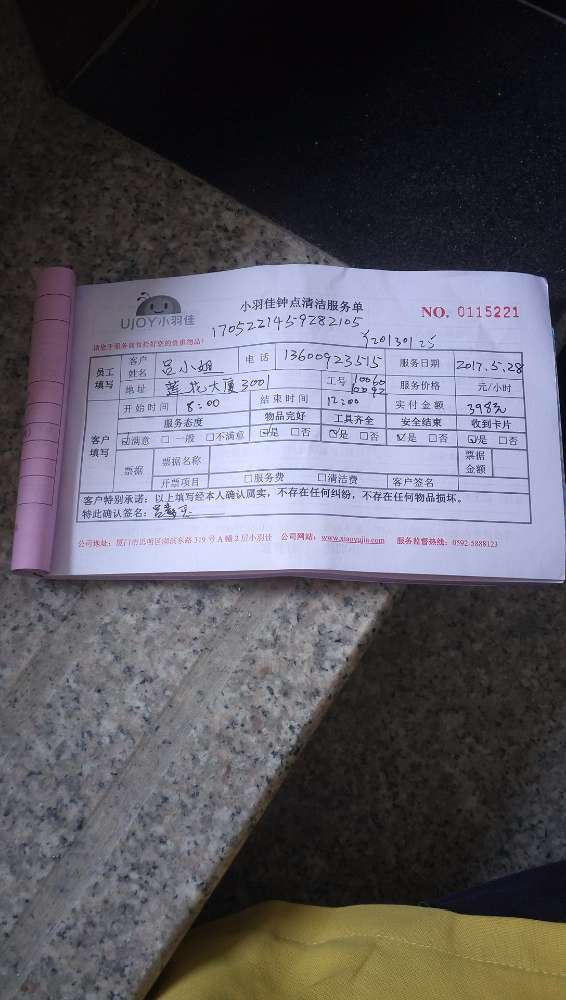 UJOY小羽佳
小羽佳钟点清洁服务单
NO. 0115221
1705221459282105
请您于服务前看管好您的贵重物品!
员工填写 客户姓名 吕小姐 电话 13600923515 服务日期 2017.5.28
地址 莲花大厦3001 工号 10060 10092 服务价格 元/小时
开始时间 8:00 结束时间 12:00 实付金额 398元
客户填写 服务态度 物品完好 工具齐全 安全结束 收到卡片
☑满意 □一般 □不满意 ☑是 □否 ☑是 □否 ☑是 □否 ☑是 □否
票据 票据名称 票据金额
开票项目 □服务费 □清洁费 客户签名
客户特别承诺:以上填写经本人确认属实,不存在任何纠纷,不存在任何物品损坏。
特此确认签名:
公司地址:厦门市思明区湖滨东路319号A幢2层小羽佳 公司网站:www.xiaoyujia.com 服务监督热线:0592-5888123